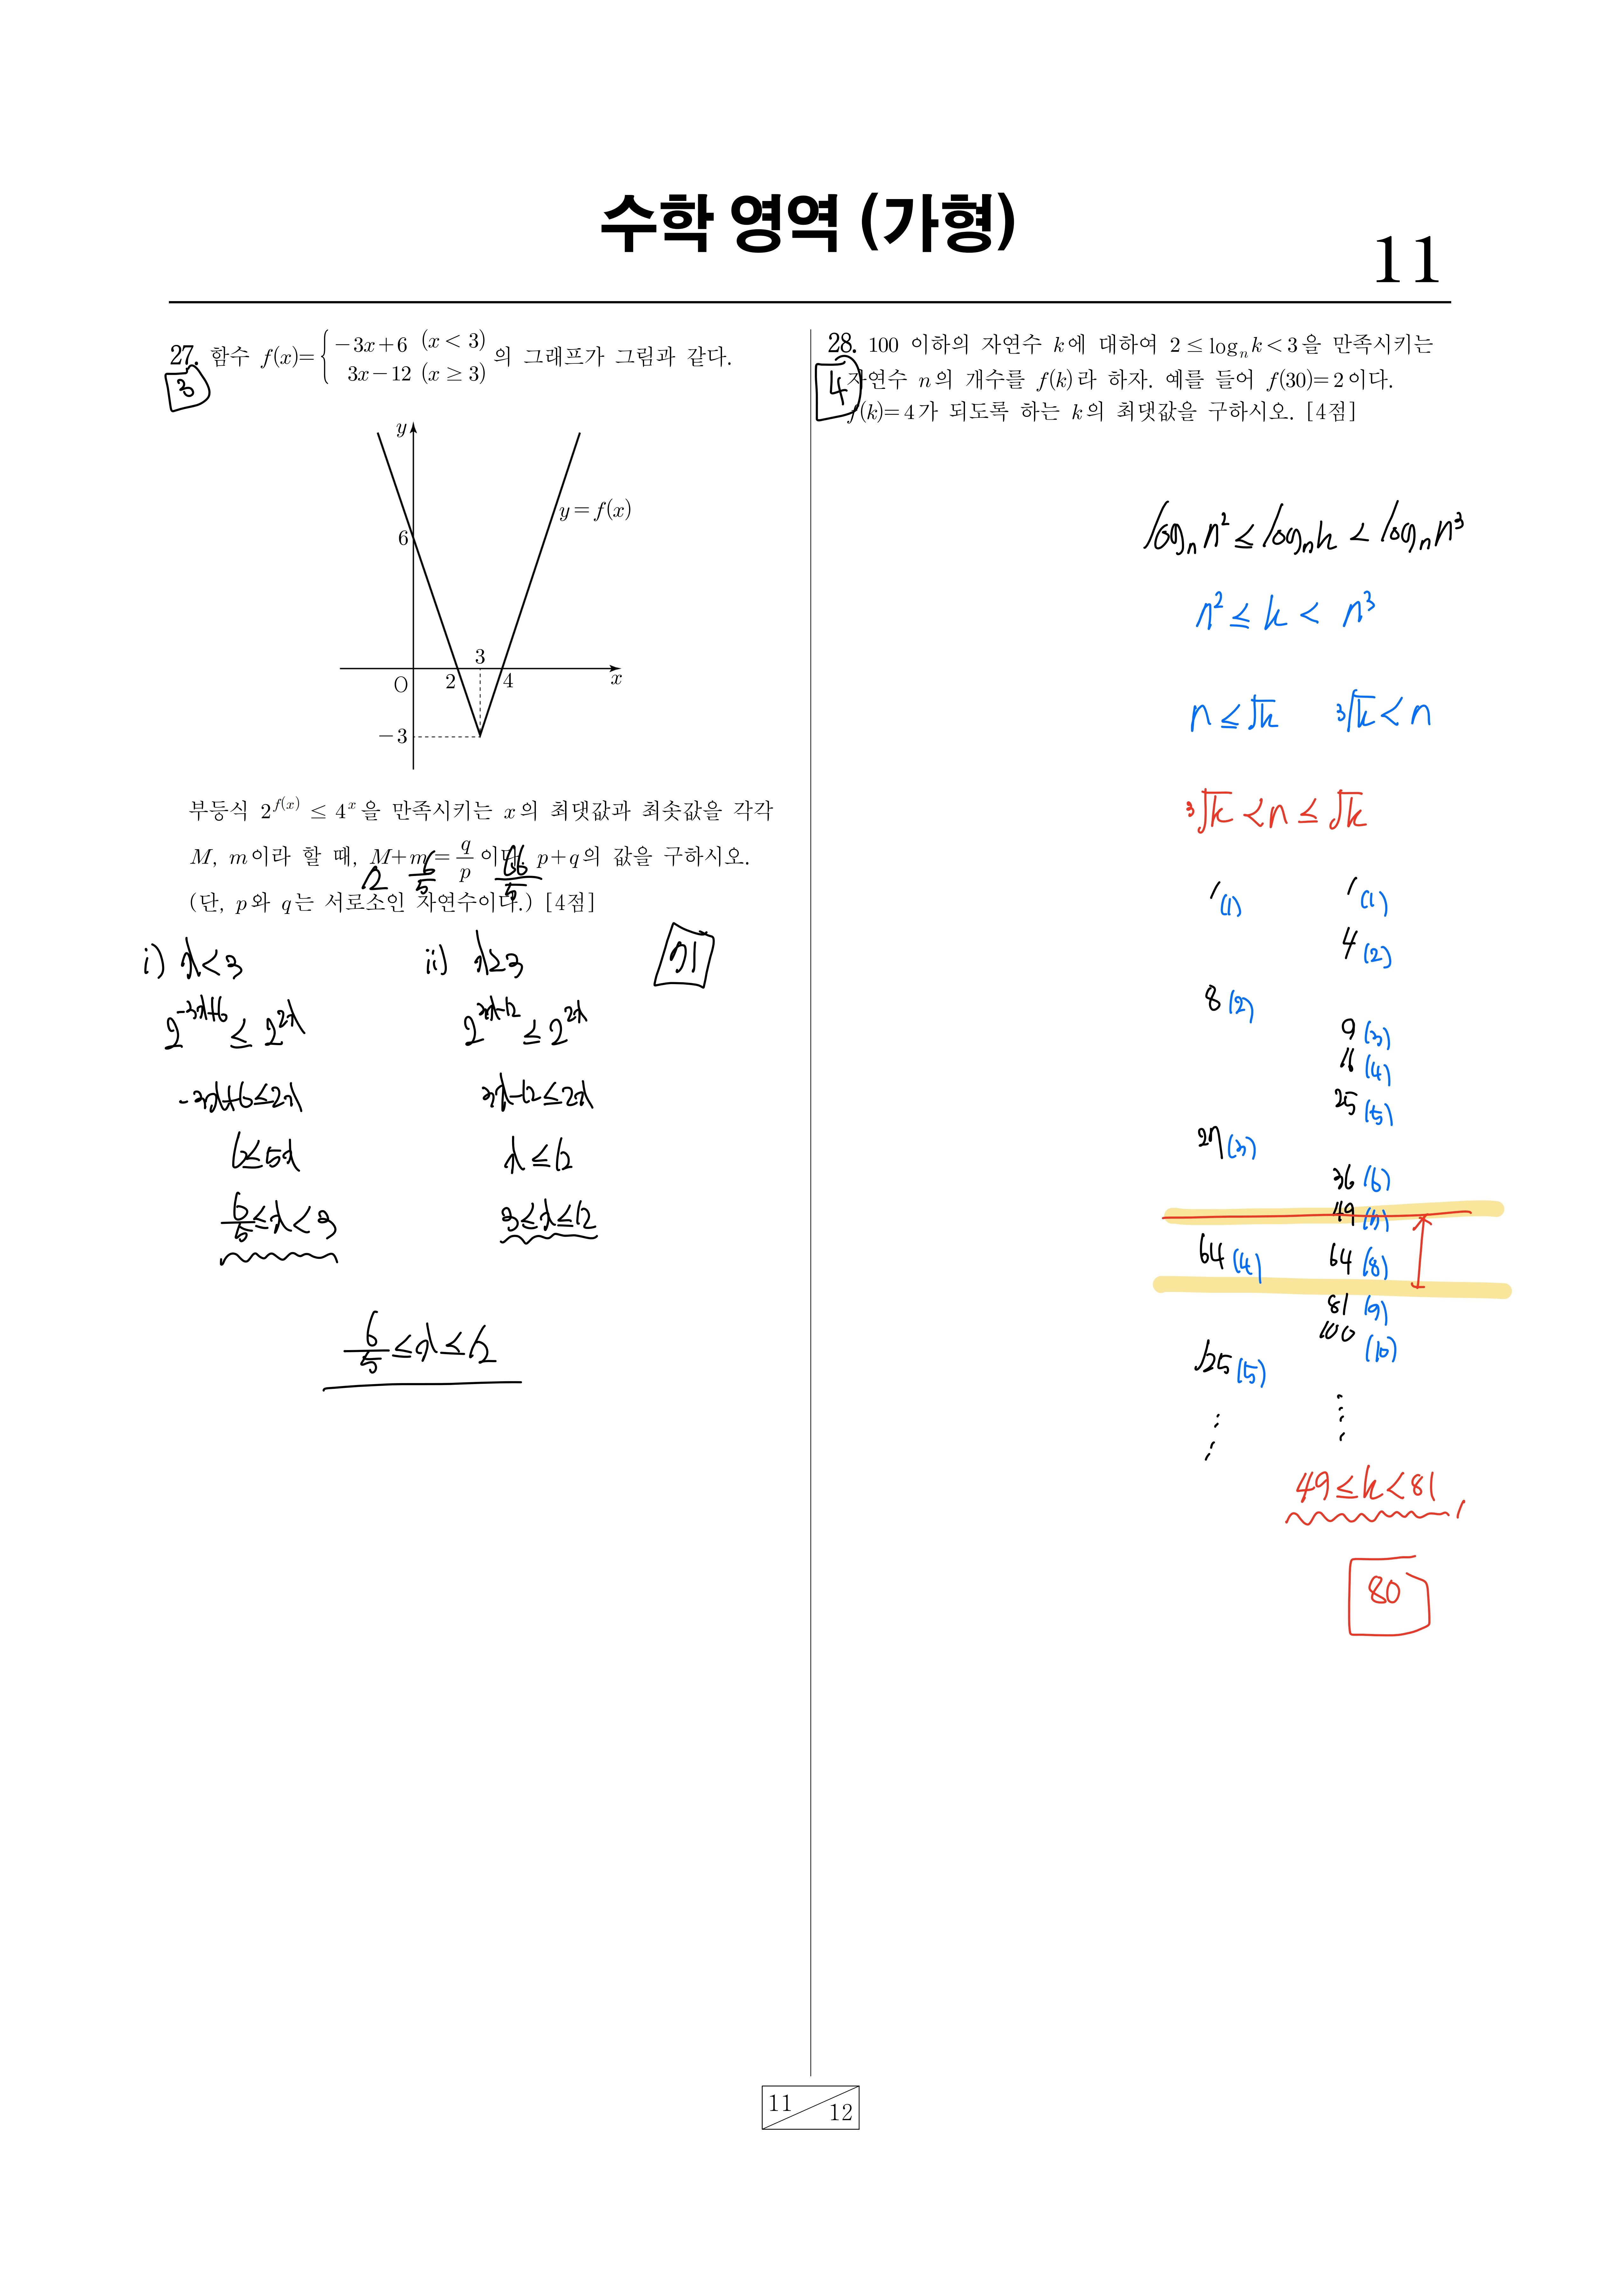 수학 영역 (가형)
11
27. 함수 f(x)= { -3x+6 (x < 3)
3x-12 (x ≥ 3) 의 그래프가 그림과 같다.
3
y
y=f(x)
6
3
O 2 4 x
-3
부등식 2^{f(x)} ≤ 4^x 을 만족시키는 x의 최댓값과 최솟값을 각각
M, m이라 할 때, M+m = q/p 이다. p+q의 값을 구하시오.
12 6/5 66/5
(단, p와 q는 서로소인 자연수이다.) [4점]
i) x<3
2^{-3x+6} ≤ 2^{2x}
-3x+6≤2x
6≤5x
6/5≤x<3
ii) x≥3
2^{3x-12} ≤ 2^{2x}
3x-12≤2x
x≤12
3≤x≤12
71
6/5≤x≤12
28. 100 이하의 자연수 k에 대하여 2 ≤ log_n k < 3을 만족시키는
4
자연수 n의 개수를 f(k)라 하자. 예를 들어 f(30)=2이다.
f(k)=4가 되도록 하는 k의 최댓값을 구하시오. [4점]
log_n n² ≤ log_n k < log_n n³
n² ≤ k < n³
n ≤ √k ³√k < n
³√k < n ≤ √k
1 (1) 1 (1)
4 (2)
8 (2)
9 (3)
16 (4)
25 (5)
27 (3)
36 (6)
49 (7)
64 (4) 64 (8)
81 (9)
100 (10)
125 (5)
⋮ ⋮
49≤k<81
80
11 12